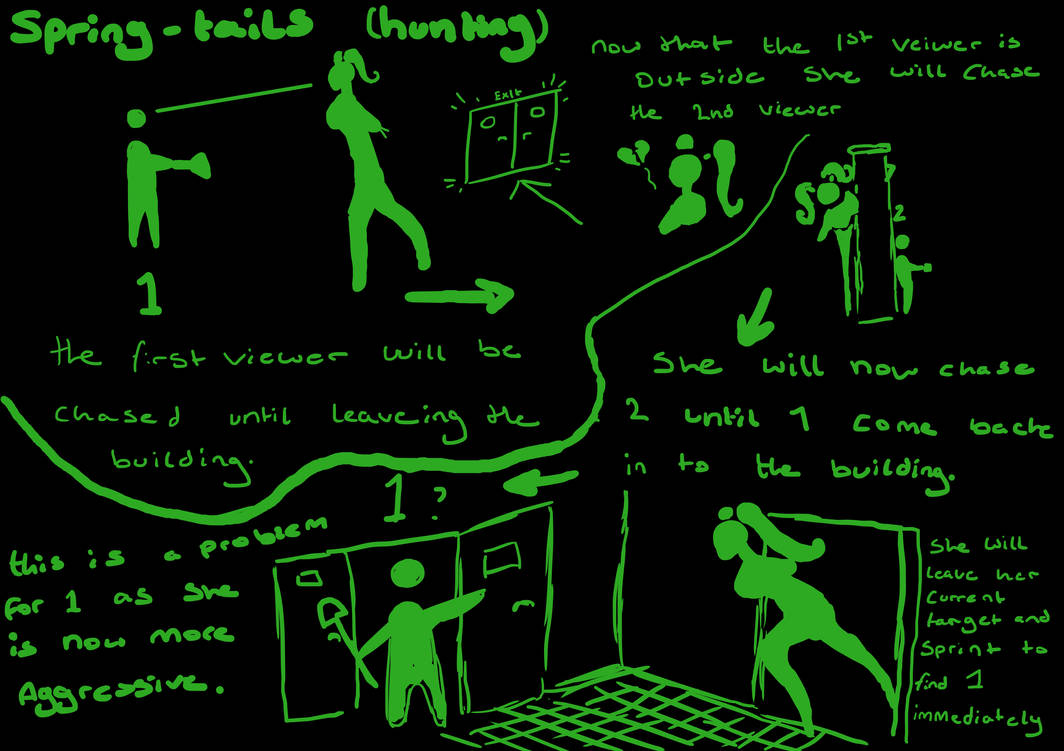 Spring-tails (hunting)
Exit
1
the first viewer will be
chased until leaveing the
building.
now that the 1st veiwer is
outside she will chase
the 2nd viewer
?
2
She will now chase
2 until 1 come back
in to the building.
1?
this is a problem
for 1 as she
is now more
Aggressive.
She will
leave her
current
target and
Sprint to
find 1
immediately